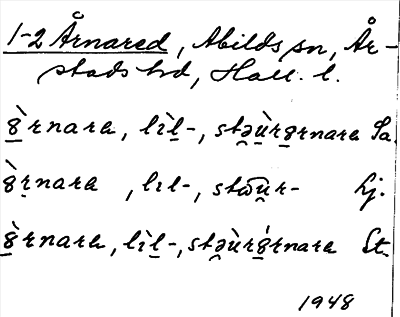 1-2 Årnared, Abilds sn, År-
stads hd, Hall. l.
8̱̀rnara, lìḻ-, stə̯ù̱r8̱rnara Sa.
8̀ṟnara, lıl-, stɷu̱̅r- Lj.
8̱̀rnara, lìḻ-, stə̯ùr8̱́rnara St.
1948